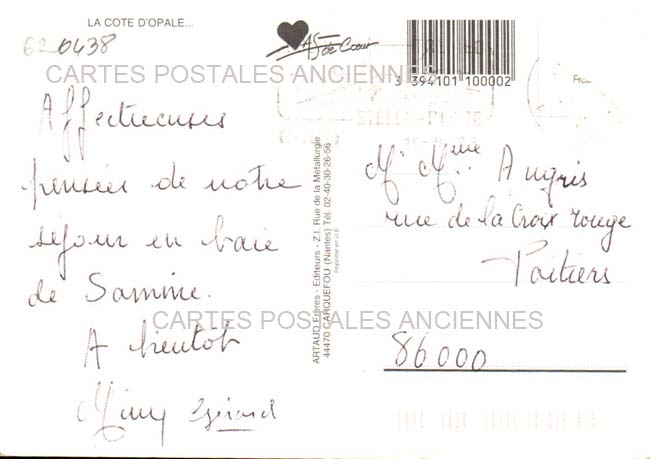 LA COTE D'OPALE...
620438
As de Cœur
3 394101 100002
CARTES POSTALES ANCIENNES
Affectueuses
pensées de notre
séjour en baie
de Somme.
A bientôt
Mimy Girard
ARTAUD Frères - Editeurs - Z.I. Rue de la Métallurgie
44470 CARQUEFOU (Nantes) Tél. 02-40-30-26-56
Imprimé en U.E.
Mr Mme Augris
rue de la Croix rouge
Poitiers
86000
CARTES POSTALES ANCIENNES